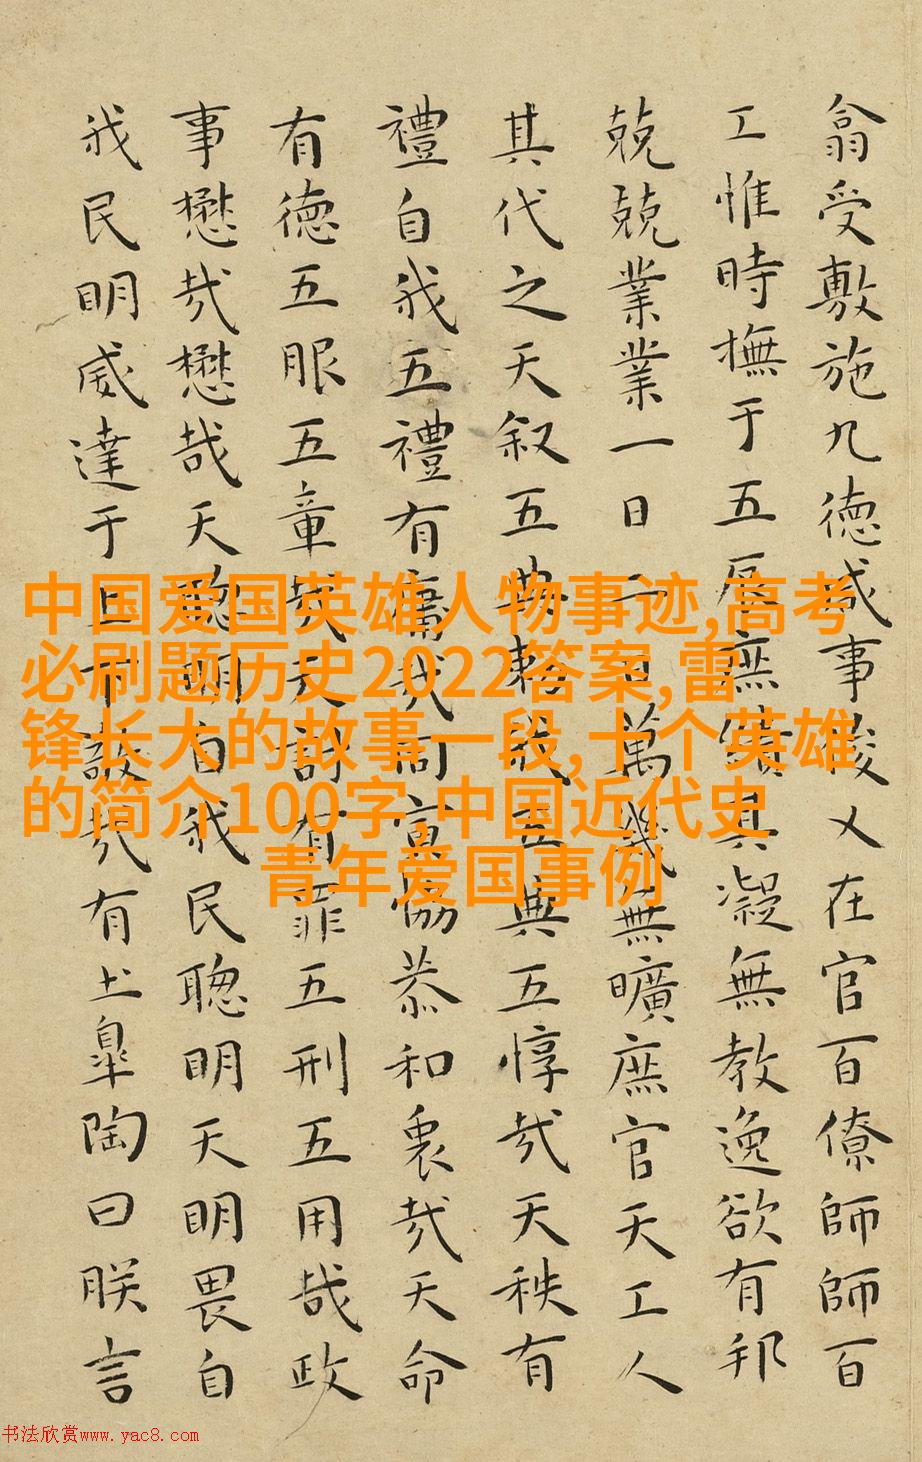 翕受敷施九德咸事俊乂在官百僚師師百
工惟時撫于五辰庶績其凝無教逸欲有邦
兢兢業業一日二日萬幾無曠庶官天工人
其代之天叙五典勑我五典五惇哉天秩有
禮自我五禮有庸哉同寅協恭和衷哉天命
有德五服五章哉天討有罪五刑五用哉政
事懋哉懋哉天聰明自我民聰明天明畏自
我民明威達于上下敬哉有土皐陶曰朕言
中国爱国英雄人物事迹,高考
必刷题历史2022答案,雷
锋长大的故事一段,十个英雄
的简介100字,中国近代史
青年爱国事例
书法欣赏www.yac8.com